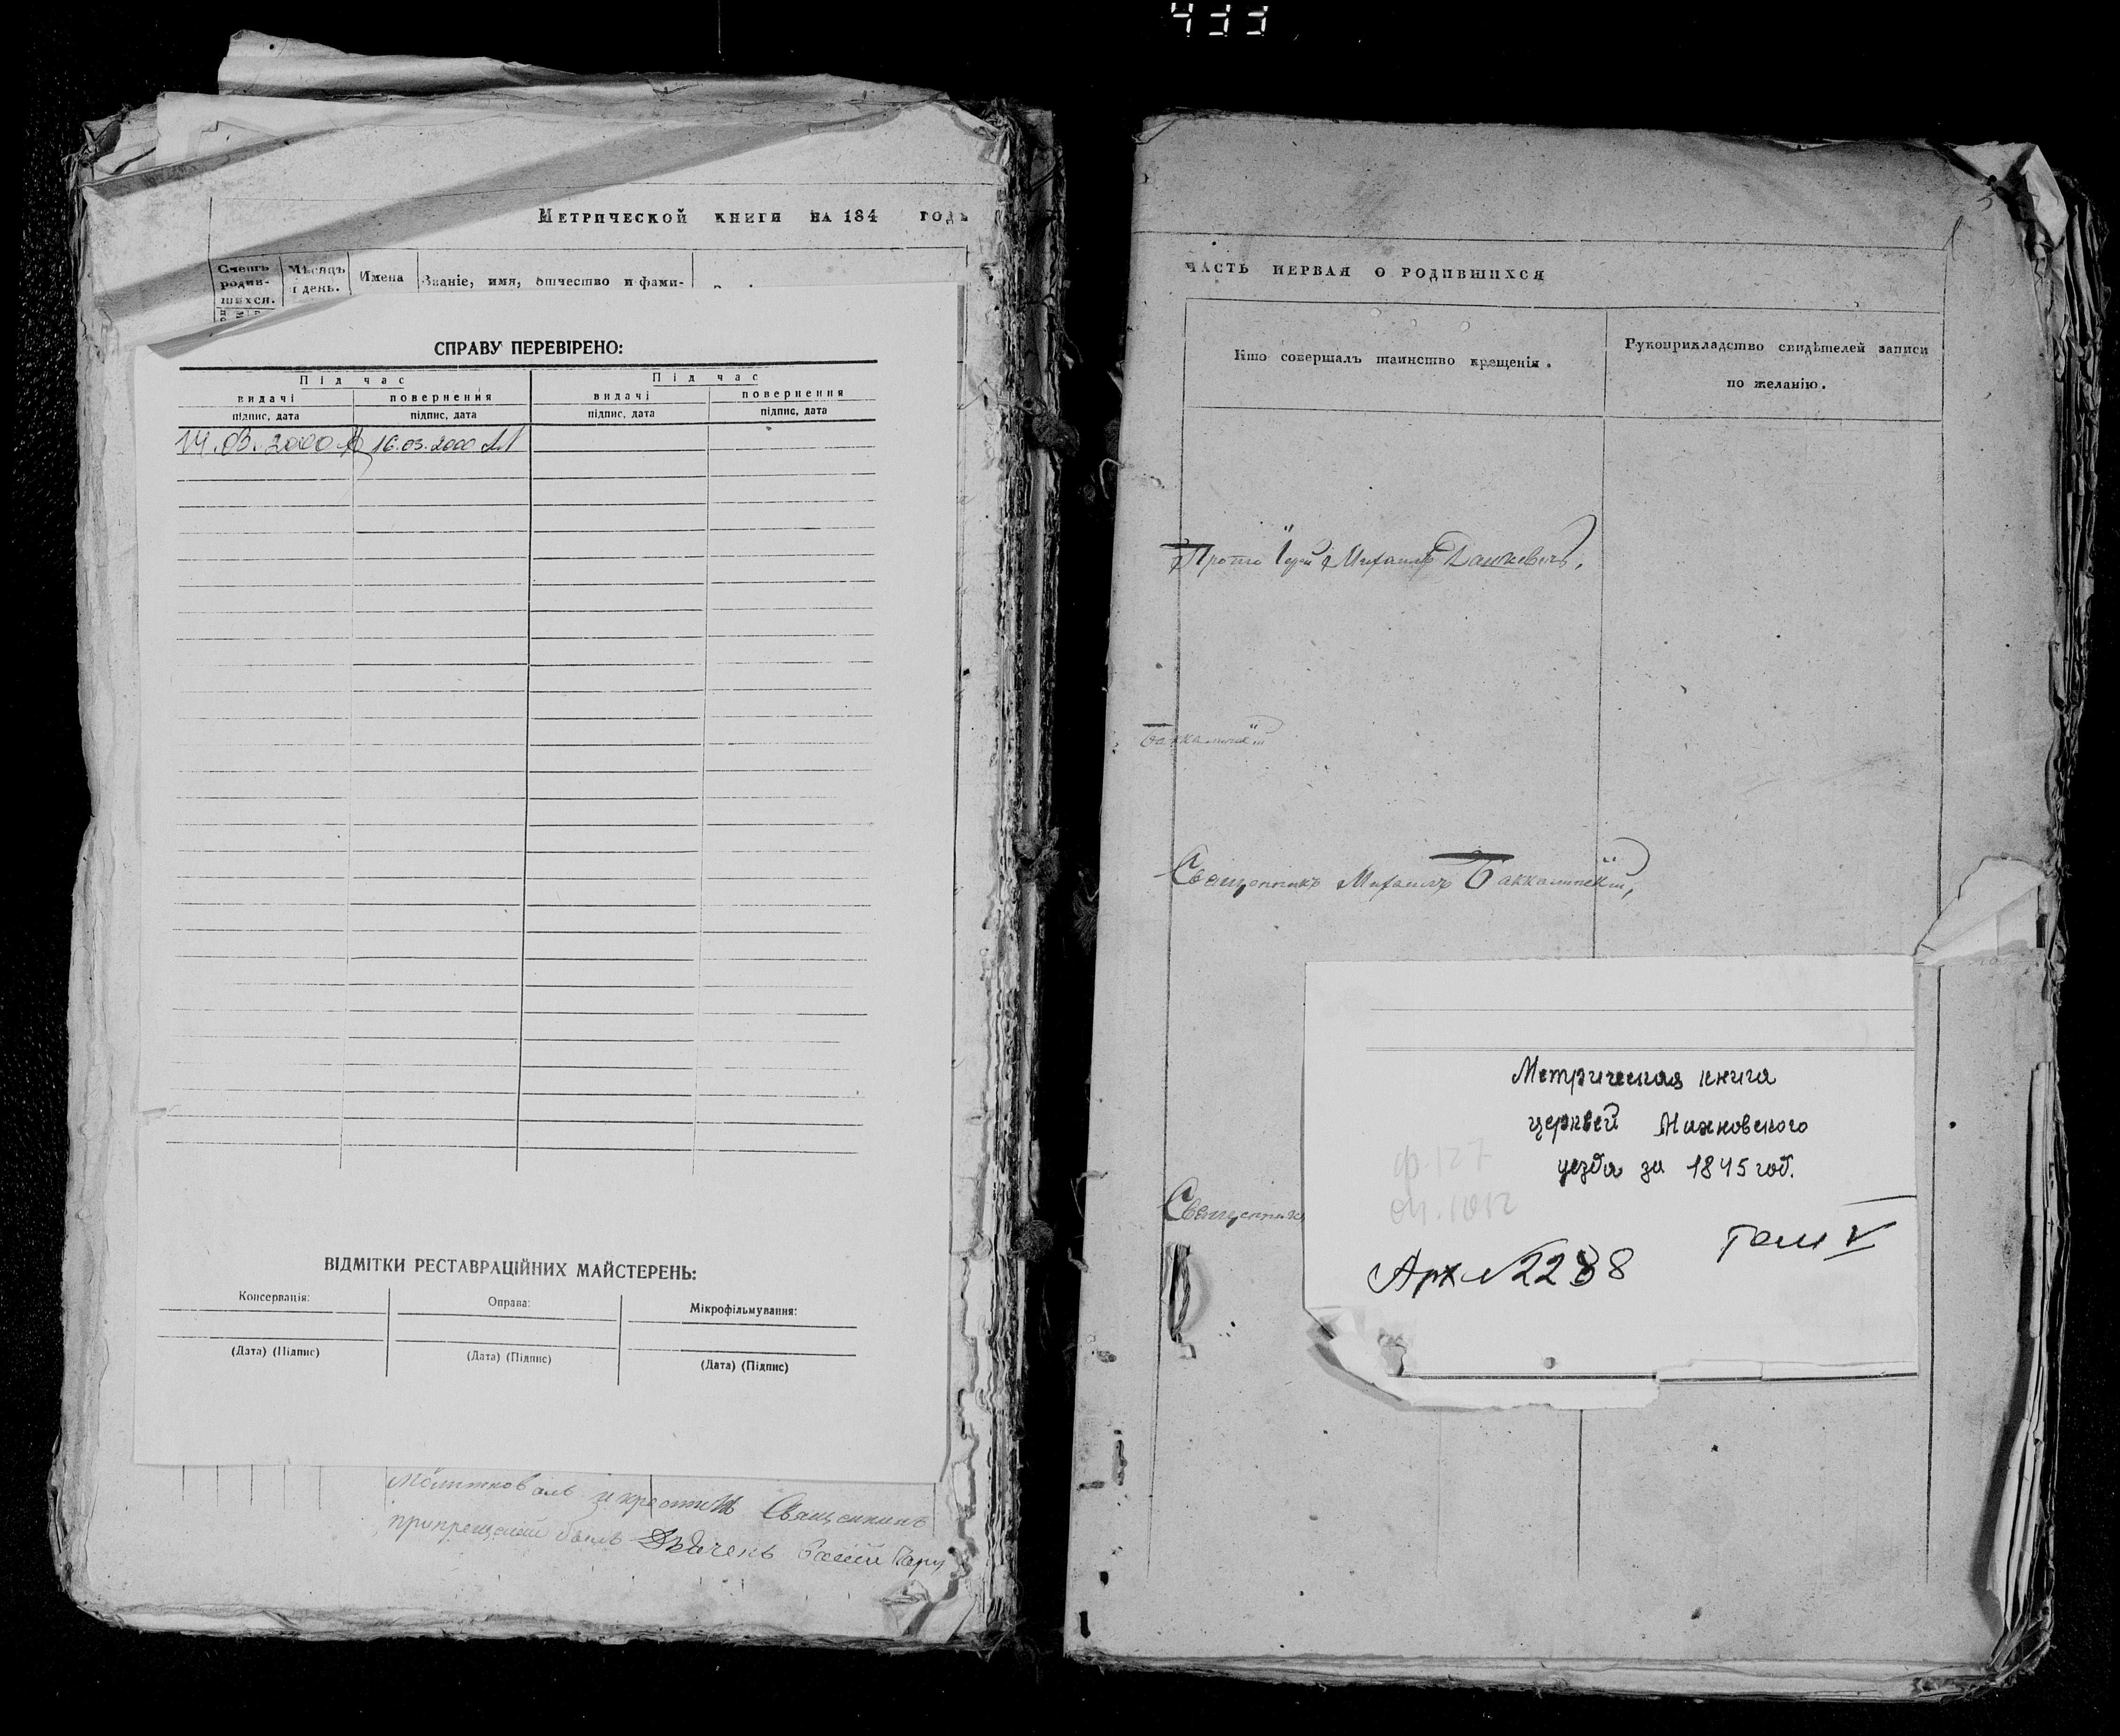 433
Метрической книги на 184 годъ
Счетъ родив-шихся.
Мѣсяцъ і день.
Имена
Званіе, имя, отчество и фами-
СПРАВУ ПЕРЕВІРЕНО:
Під час
Під час
видачі
повернення
видачі
повернення
підпис, дата
підпис, дата
підпис, дата
підпис, дата
14.03.2000
16.03.2000
ВІДМІТКИ РЕСТАВРАЦІЙНИХ МАЙСТЕРЕНЬ:
Консервація:
Оправа:
Мікрофільмування:
(Дата) (Підпис)
(Дата) (Підпис)
(Дата) (Підпис)
Молитвовалъ и крестилъ Священникъ
ЧАСТЬ ПЕРВАЯ О РОДИВШИХСЯ
Кто совершалъ таинство крещенія.
Рукоприкладство свидѣтелей записи
по желанію.
Михаилъ
Священникъ Михаилъ
Священникъ
Метрическая книга
церквей Махновского
уезда за 1845 год.
ф. 127
оп. 1012
Том V
Арх № 2238